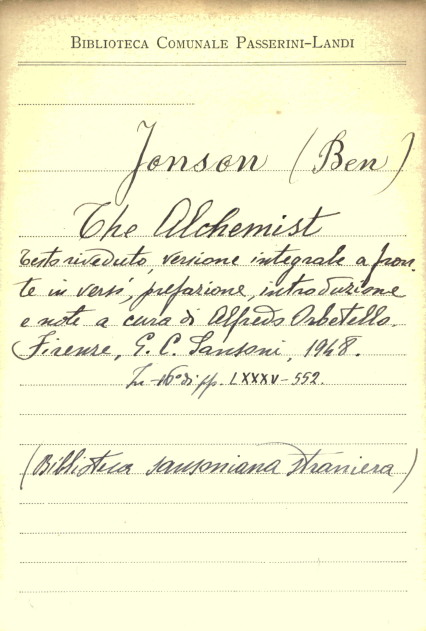 BIBLIOTECA COMUNALE PASSERINI-LANDI
Jonson (Ben)
The Alchemist
testo riveduto, versione integrale a fron-
te in versi, prefazione, introduzione
e note a cura di Alfredo Orbetello.
Firenze, G. C. Sansoni, 1948.
In-16° di pp. LXXXV-552.
(Biblioteca sansoniana straniera)